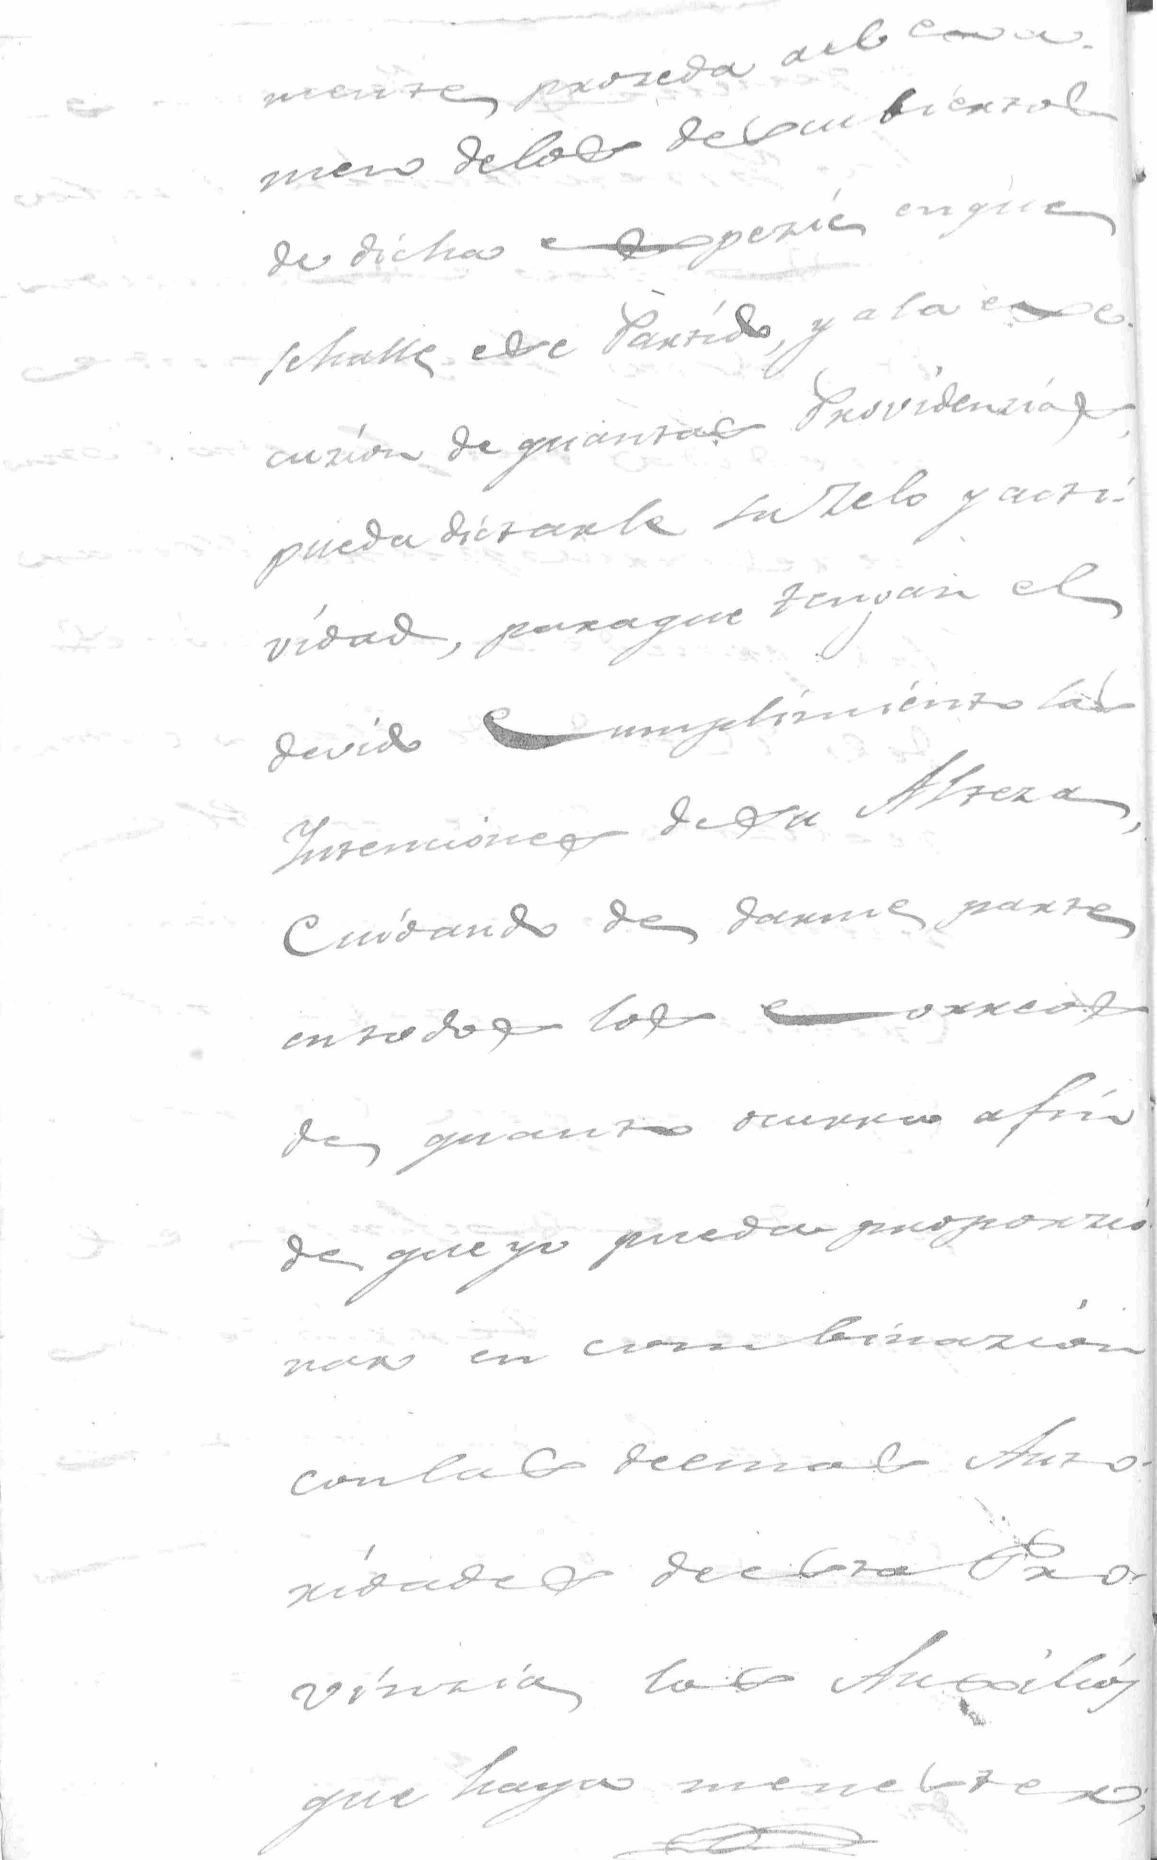 mente prozeda ael exa-
men delos descubiertos
de dicha espezie enque
sehalle ese Partido, y ala exe-
cuzion de quantas Providenzias,
pueda dictarle su Zelo y acti-
vidad, paraque tengan el
devido Cumplimiento las
Intenciones desu Alteza,
Cuidando de darme parte
entodos los Correos
de quanto ocurra afin
de que yo pueda proporzio
nar en combinazion
conlas demas Auto-
ridades deesta Pro-
vinzia los Auxilios
que haya menester;